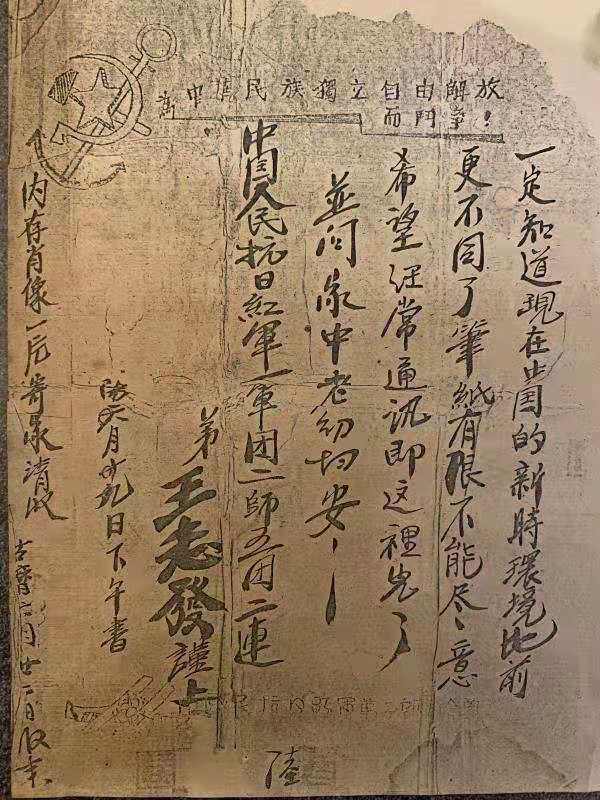 為中華民族獨立自由解放
而鬥爭!
一定知道現在中国的新時環境比前
更不同了筆紙有限不能尽、意
希望经常通訊即這裡完了
並问家中老幼均安、
中国人民抗日紅軍一軍团一師五团二連
弟王志發謹上
月九日下午書
內存肖像一片寄家请收
古曆月廿日收
陸